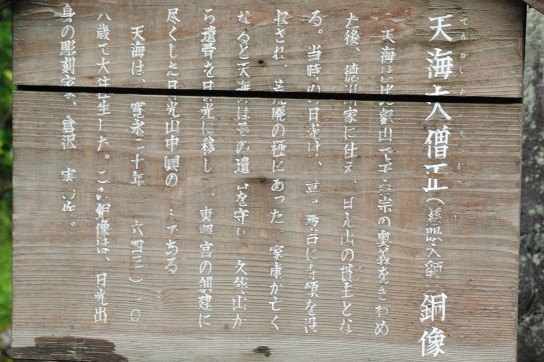 天海大僧正（慈眼大師） 銅像
天海は比叡山で天台宗の奥義をきわめ
た後、徳川家に仕え、日光山の貫主とな
る。当時の日光は、豊臣秀吉に寺領を没
収され、荒廃の極にあった。家康が亡く
なると天海はその遺言を守り、久能山か
ら遺骨を日光に移し、東照宮の創建に
尽くした日光山中興の
天海は、寛永二十年（一六四三）、
八歳で大往生した。この銅像は、日光出
身の彫刻家、倉沢 実